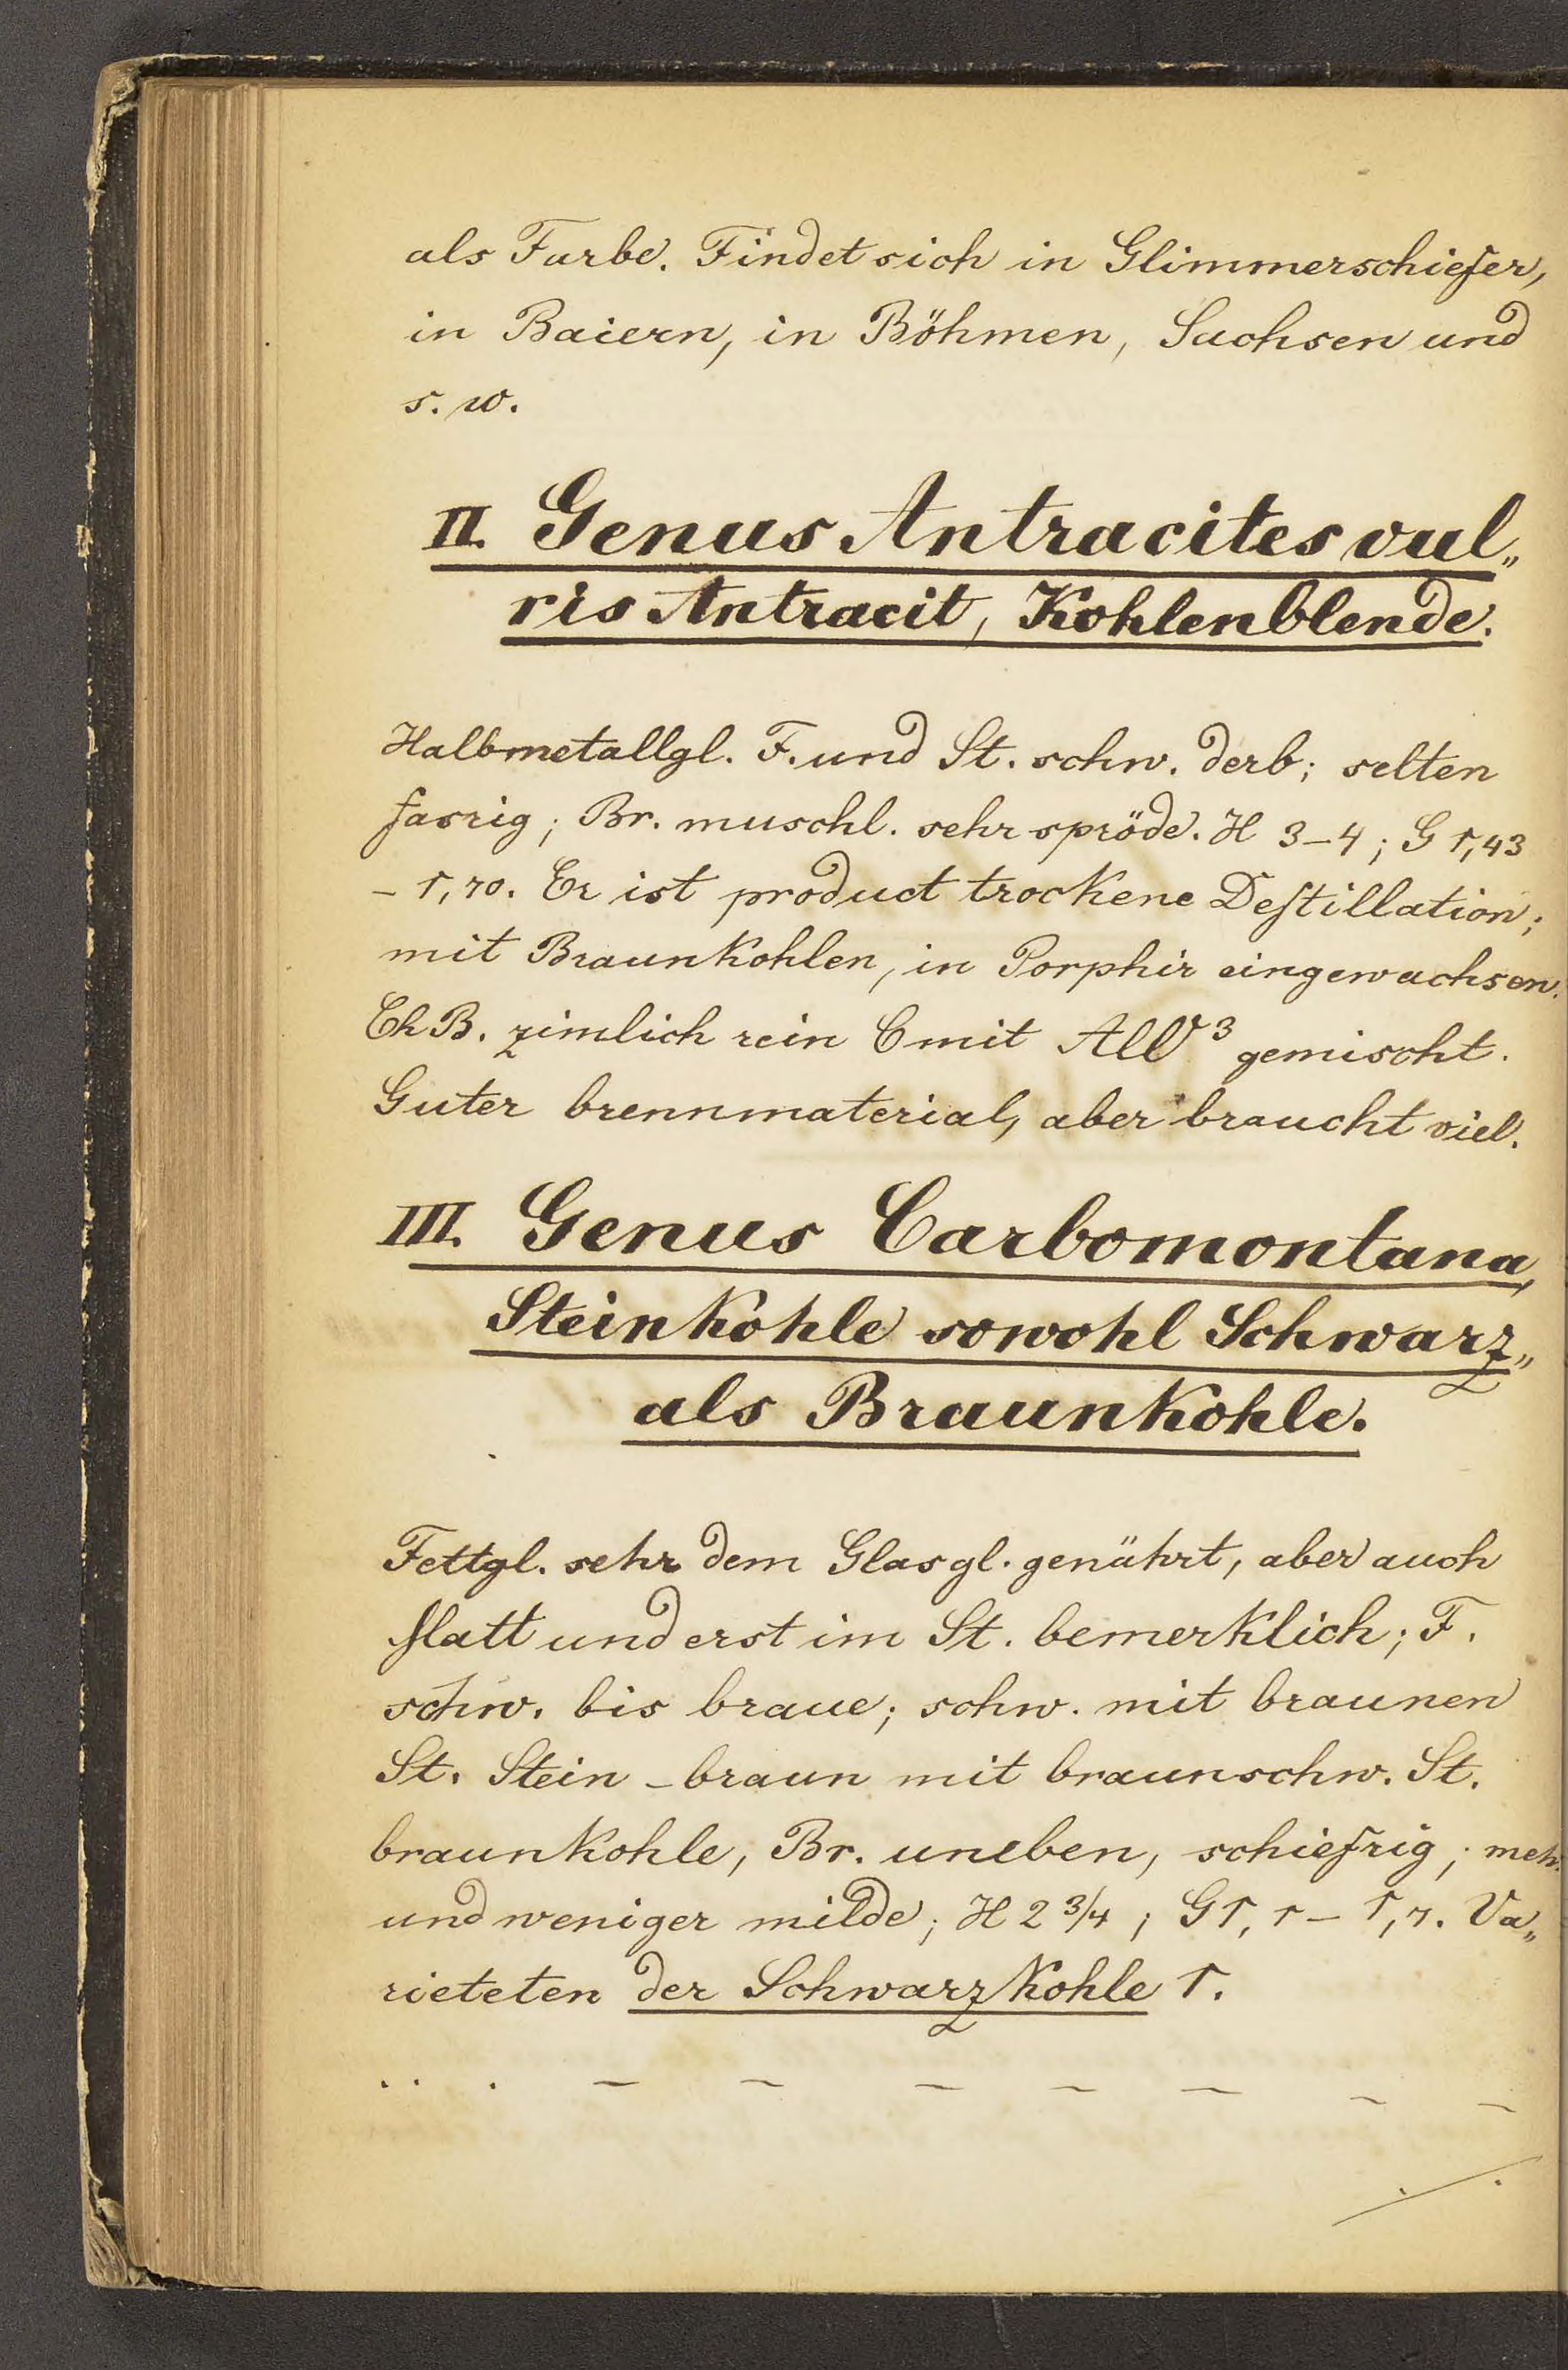 als Farbe. Findet sich in Glimmerschiefer,
in Baiern, in Böhmen, Sachsen und
s. w.
II. Genus Antracites vul„
ris Antracit, Kohlenblende.
Halbmetallgl. F. und St. schw. derb; selten
fasrig; Br. muschl. sehr spröde. H 3–4; G 1,43
– 1,70. Er ist product trockene Destillation;
mit Braunkohlen, in Porphir eingewachsen.
Ch B. zimlich rein C mit gemischt.
Guter brennmaterial, aber braucht viel.
III. Genus Carbomontana,
Steinkohle sowohl Schwarz„
als Braunkohle.
Fettgl. sehr dem Glasgl. genährt, aber auch
und erst im St. bemerklich; F.
schw. bis braue; schw. mit braunen
St. Stein – braun mit braunschw. St.
braunkohle, Br. uneben, schiefrig; mehr
und weniger milde; H 2 3/4; G 1,1 – 1,7. Va„
rieteten der Schwarzkohle 1.